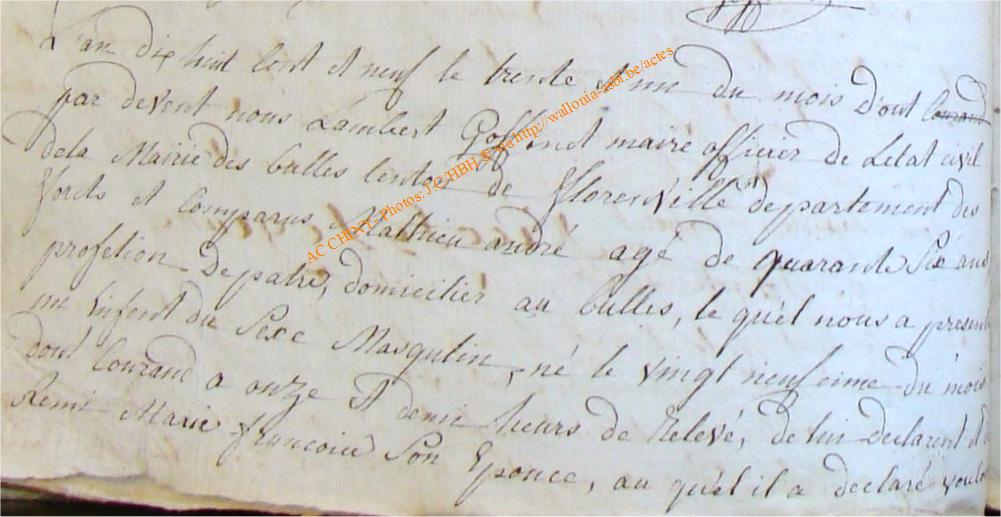 L'an dix huit Cent et neuf le trente et un du mois D'out Courand
par devent nous Lambert Goffinet maire officier de Letat civil
dela Mairie des bulles Canton de fflorenville departement des
fforets et Comparus Mathieu andré agé de quarante Six ans
profetion De patre, domicilier au bulles, le quél nous a présenté
un Enfent du Sexe Masqulin, né le vingt neufeime du mois
dout Courand a onze et demie heurs de relevé, de lui declarent et de
Remi Marie francoise Son Epouce, au quél il a declaré voulo
AC CHINY - Photos: J.C/HBH © via http://wallonia-asbl.be/actes